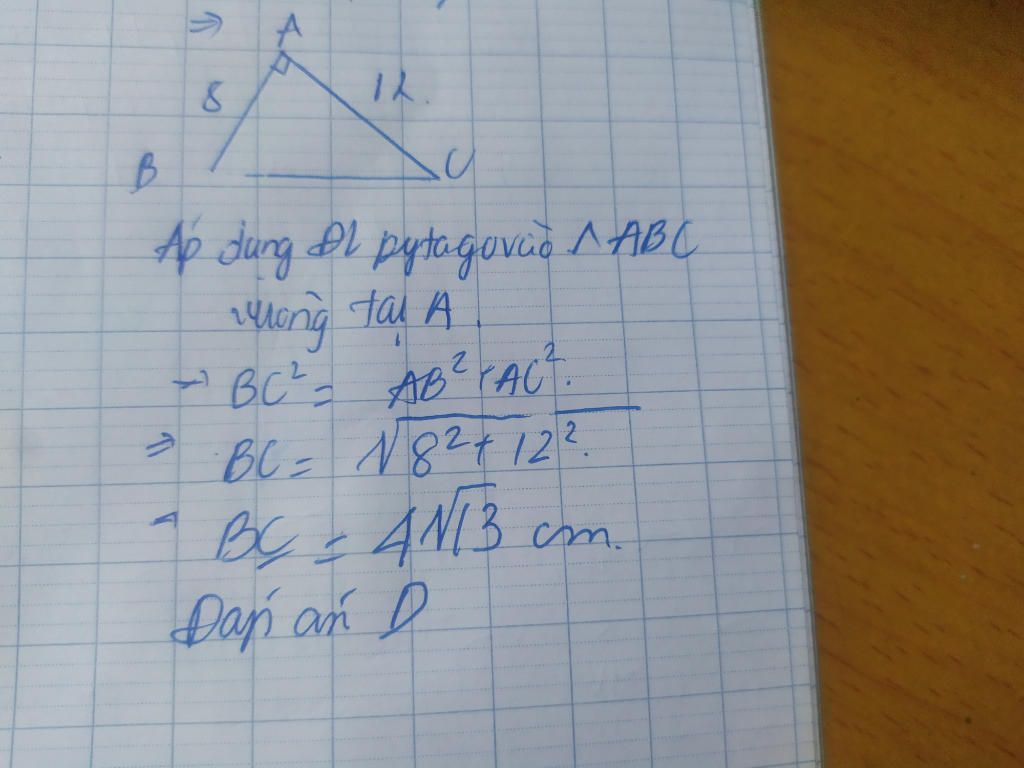 ⇒ A
8 12.
B C
Áp dụng ĐL pytago vào △ ABC
vuông tại A.
→ BC² = AB² + AC².
⇒ BC = √8² + 12².
BC = 4√13 cm.
Đáp án D